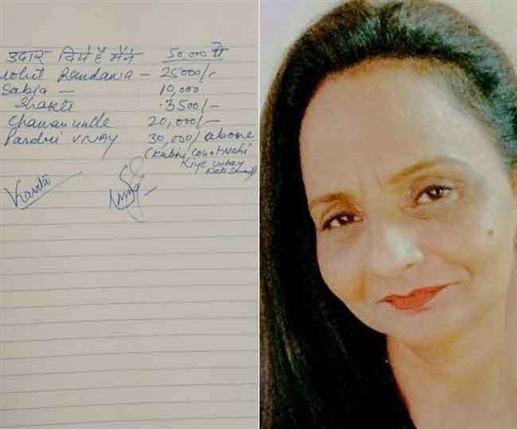 उदार दिये है मैंने 50,000 से
Mohit Randawa — 25000/-
Sabja — 10,000
Shakti 3500/-
Chawan uncle 20,000/-
Pardri VIJAY 30,000/ above
(Kabhi count Nahi
Kiye
Kavita